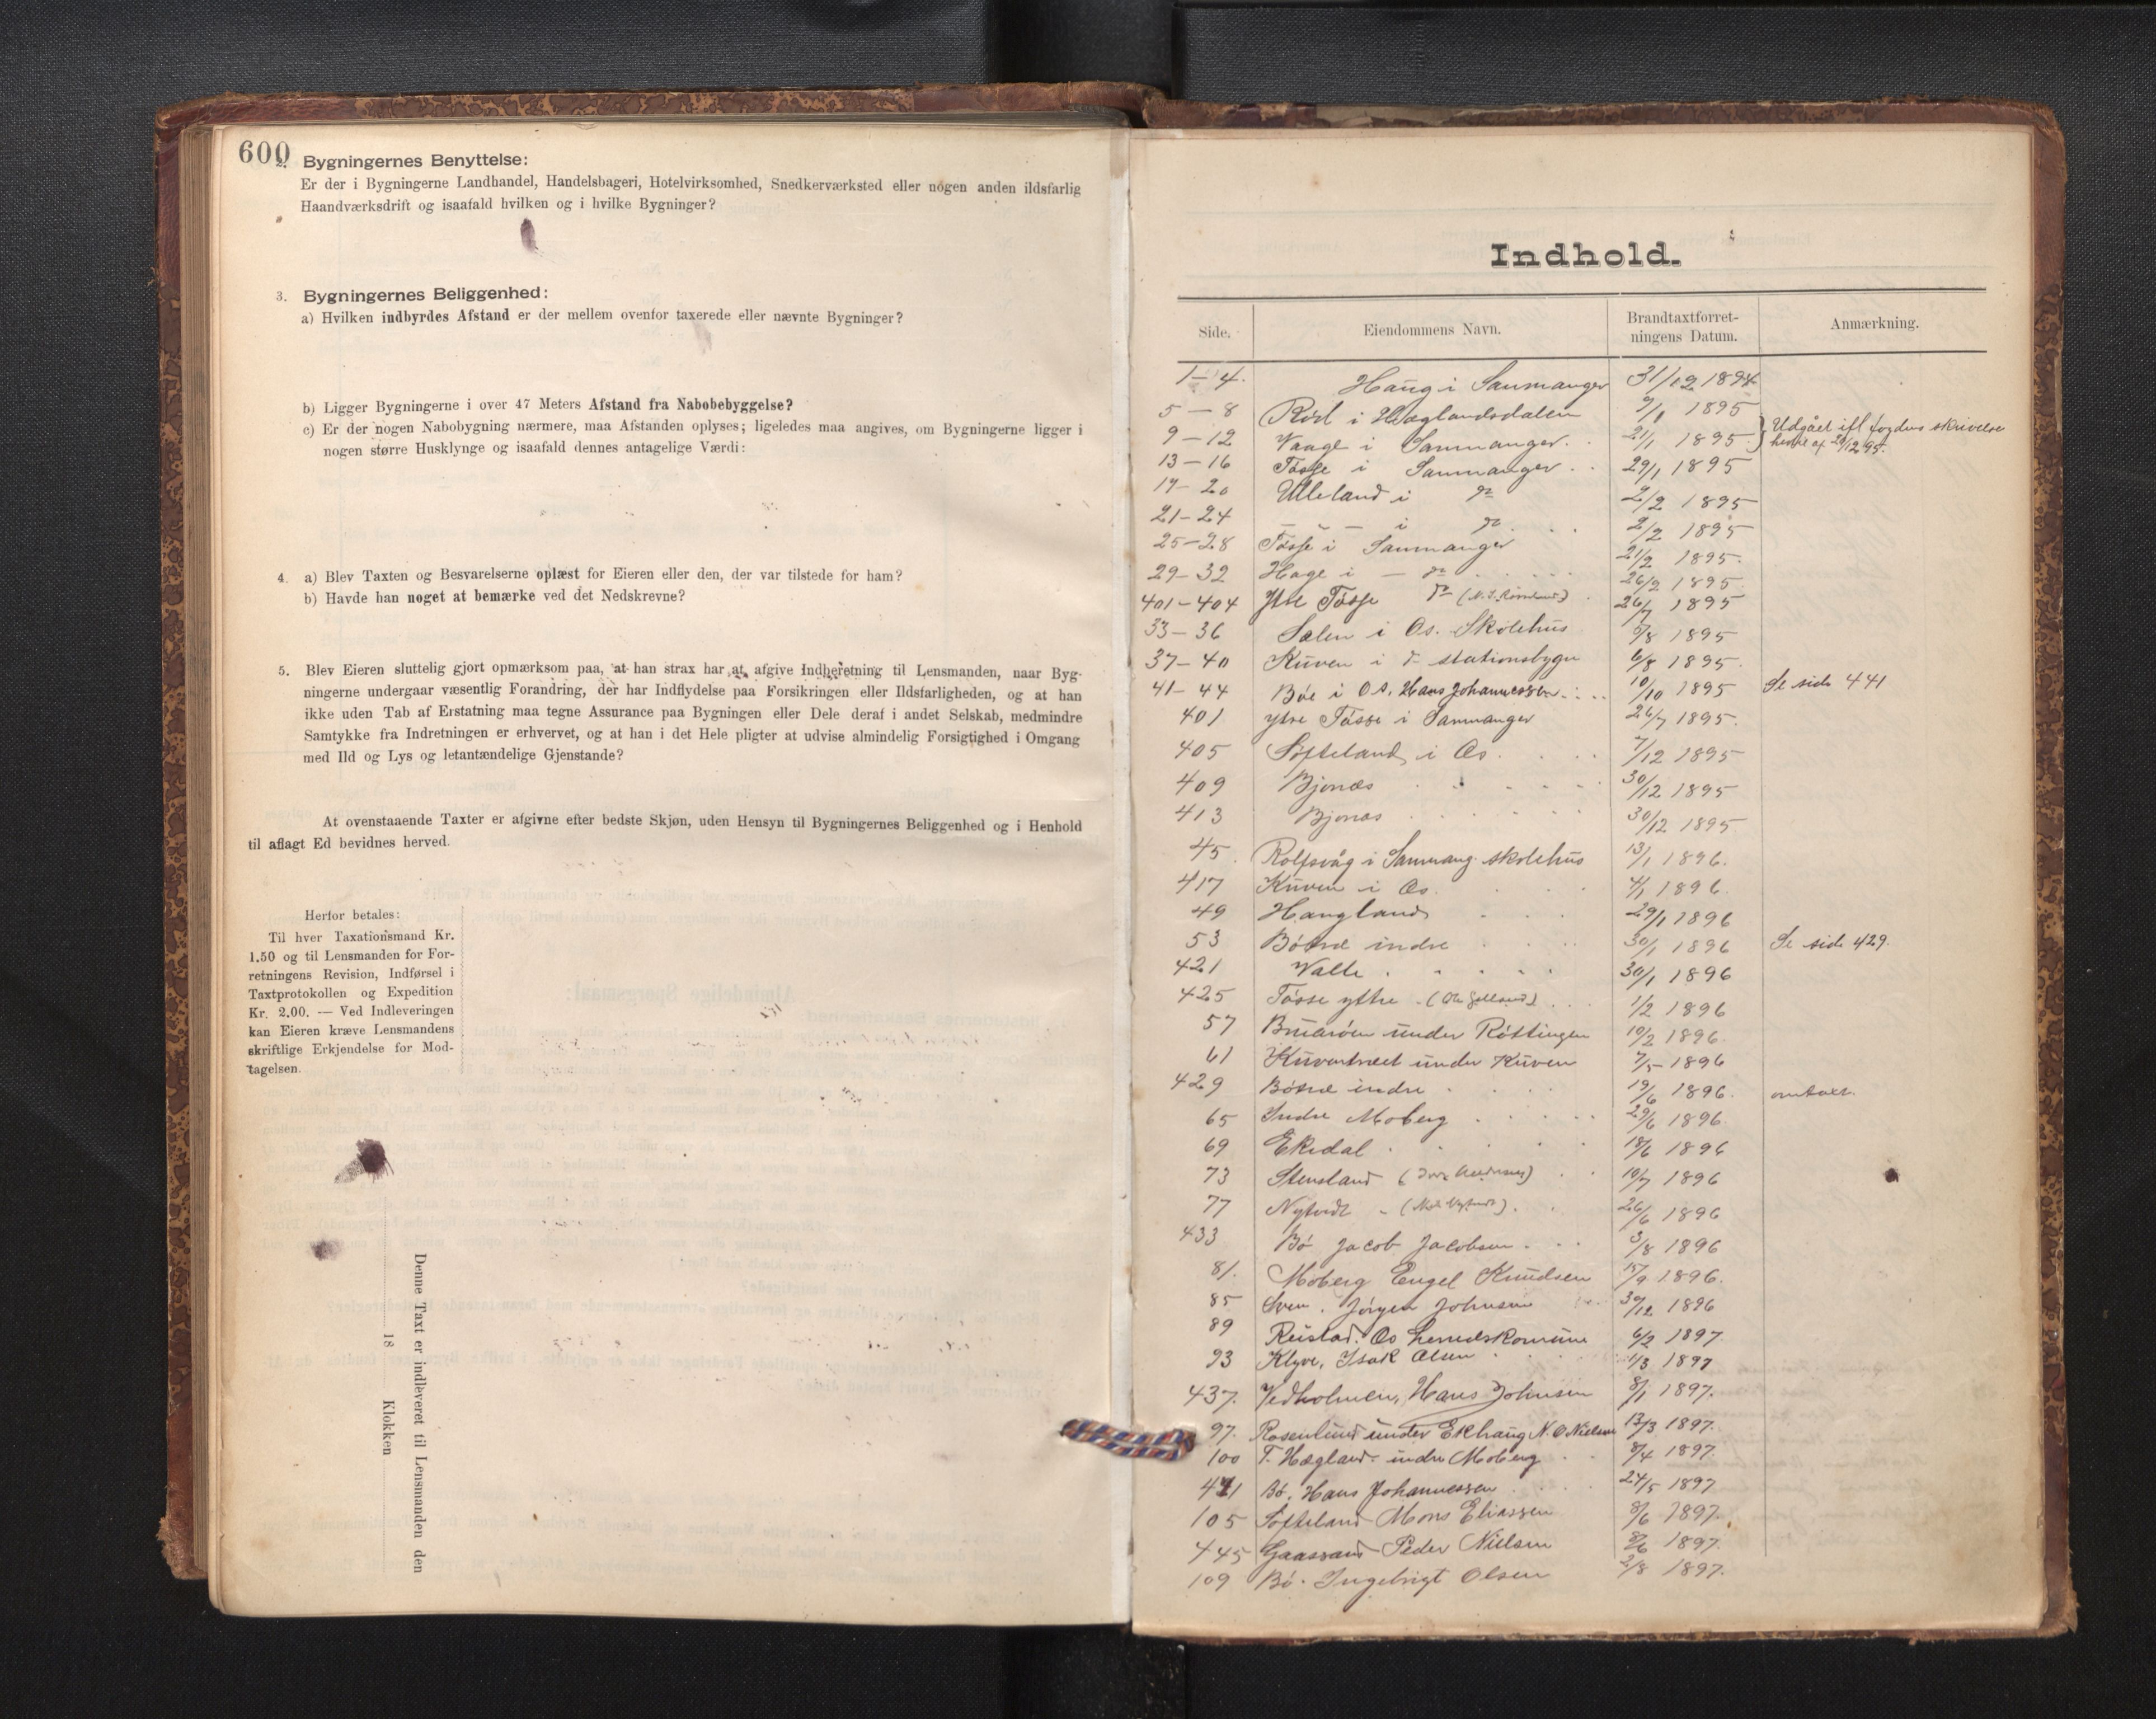 600
2. Bygningernes Benyttelse:
Er der i Bygningerne Landhandel, Handelsbageri, Hotelvirksomhed, Snedkerværksted eller nogen anden ildsfarlig
Haandværksdrift og isaafald hvilken og i hvilke Bygninger?
3. Bygningernes Beliggenhed:
a) Hvilken indbyrdes Afstand er der mellem ovenfor taxerede eller nævnte Bygninger?
b) Ligger Bygningerne i over 47 Meters Afstand fra Nabobebyggelse?
c) Er der nogen Nabobygning nærmere, maa Afstanden oplyses; ligeledes maa angives, om Bygningerne ligger i
nogen større Husklynge og isaafald dennes antagelige Værdi:
4. a) Blev Taxten og Besvarelserne oplæst for Eieren eller den, der var tilstede for ham?
b) Havde han noget at bemærke ved det Nedskrevne?
5. Blev Eieren sluttelig gjort opmærksom paa, at han strax har at afgive Indberetning til Lensmanden, naar Byg-
ningerne undergaar væsentlig Forandring, der har Indflydelse paa Forsikringen eller Ildsfarligheden, og at han
ikke uden Tab af Erstatning maa tegne Assurance paa Bygningen eller Dele deraf i andet Selskab, medmindre
Samtykke fra Indretningen er erhvervet, og at han i det Hele pligter at udvise almindelig Forsigtighed i Omgang
med Ild og Lys og letantændelige Gjenstande?
At ovenstaaende Taxter er afgivne efter bedste Skjøn, uden Hensyn til Bygningernes Beliggenhed og i Henhold
til aflagt Ed bevidnes herved.
Herfor betales:
Til hver Taxationsmand Kr.
1.50 og til Lensmanden for For-
retningens Revision, Indførsel i
Taxtprotokollen og Expedition
Kr. 2.00. — Ved Indleveringen
kan Eieren kræve Lensmandens
skriftlige Erkjendelse for Mod-
tagelsen.
Denne Taxt er indleveret til Lensmanden den
18 Klokken
Indhold.
Side. Eiendommens Navn. Brandtaxtforret-ningens Datum. Anmærkning.
1-4. Haug i Samnanger 31/12 1894
5-8 Rød i Hæglandsdalen 9/1 1895
9-12 Vaage i Samnanger. 21/1 1895 } Udgået ifl fogdens skrivelse
13-16 Tøsse i Samnanger 29/1 1895
17-20 Ulleland i do 2/2 1895
21-24 - " - i do 2/2 1895
25-28 Tøsse i Samnanger 21/2 1895.
29-32 Hage i - do 26/2 1895
401-404 Ytre Tøsse do 26/7 1895
33-36 Salen i Os. Skolehus 5/8 1895
37-40 Kuven i do stationsbygn 6/8 1895.
41-44 Bøe i Os. Hans Johannessen 10/10 1895 Se side 441
401 ytre Tøsse i Samnanger 26/7 1895.
405 Søfteland i Os. 7/12 1895
409 Bjonæs 30/12 1895
413 Bjonæs 30/12 1895
45 Rolfsvåg i Samnang. skolehus 13/1 1896.
417 Kuven i Os. 4/1 1896.
49 Haugland 29/1 1896
53 Bøtræ indre 30/1 1896 Se side 429.
421 Valle 30/1 1896
425 Tøsse ytre 1/2 1896
57 Bruarøen under Røttingen 10/2 1896.
61 Kuventræet under Kuven 7/5 1896
429 Bøtræ indre 19/6 1896. omtaxt.
65 Indre Moberg 29/6 1896.
69 Ekedal 18/6 1896
73 Stensland 10/7 1896
77 Nytvedt 26/6 1896
433 Bø Jacob Jacobsen 3/8 1896
81. Moberg Engel Knudsen 15/9 1896.
85 Sven. Jørgen Johnsen 30/12 1896
89 Reistad. Os herredskomune 6/2 1897.
93 Klyve, Isak Olsen 1/3 1897
437. Vedholmen, Hans Johnsen 8/1 1897.
97. Rosenlund under Ekhaug N. O. Nielsen 13/3 1897.
100 T. Hægland indre Moberg 8/4 1897.
441 Bø. Hans Johannessen 24/5 1897
105 Søfteland Mons Eliassen 8/6 1897.
445 Gaassand Peder Nielsen 8/6 1897.
109 Bø. Ingebrigt Olsen 2/8 1897.